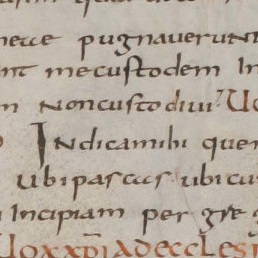 pugnaverunt
nt mecustodem In
m Noncustodivi. Uo
Indicamihi quem
ubi pascas ubi cu
Incipiam per gre
Uox xpi ad eccles